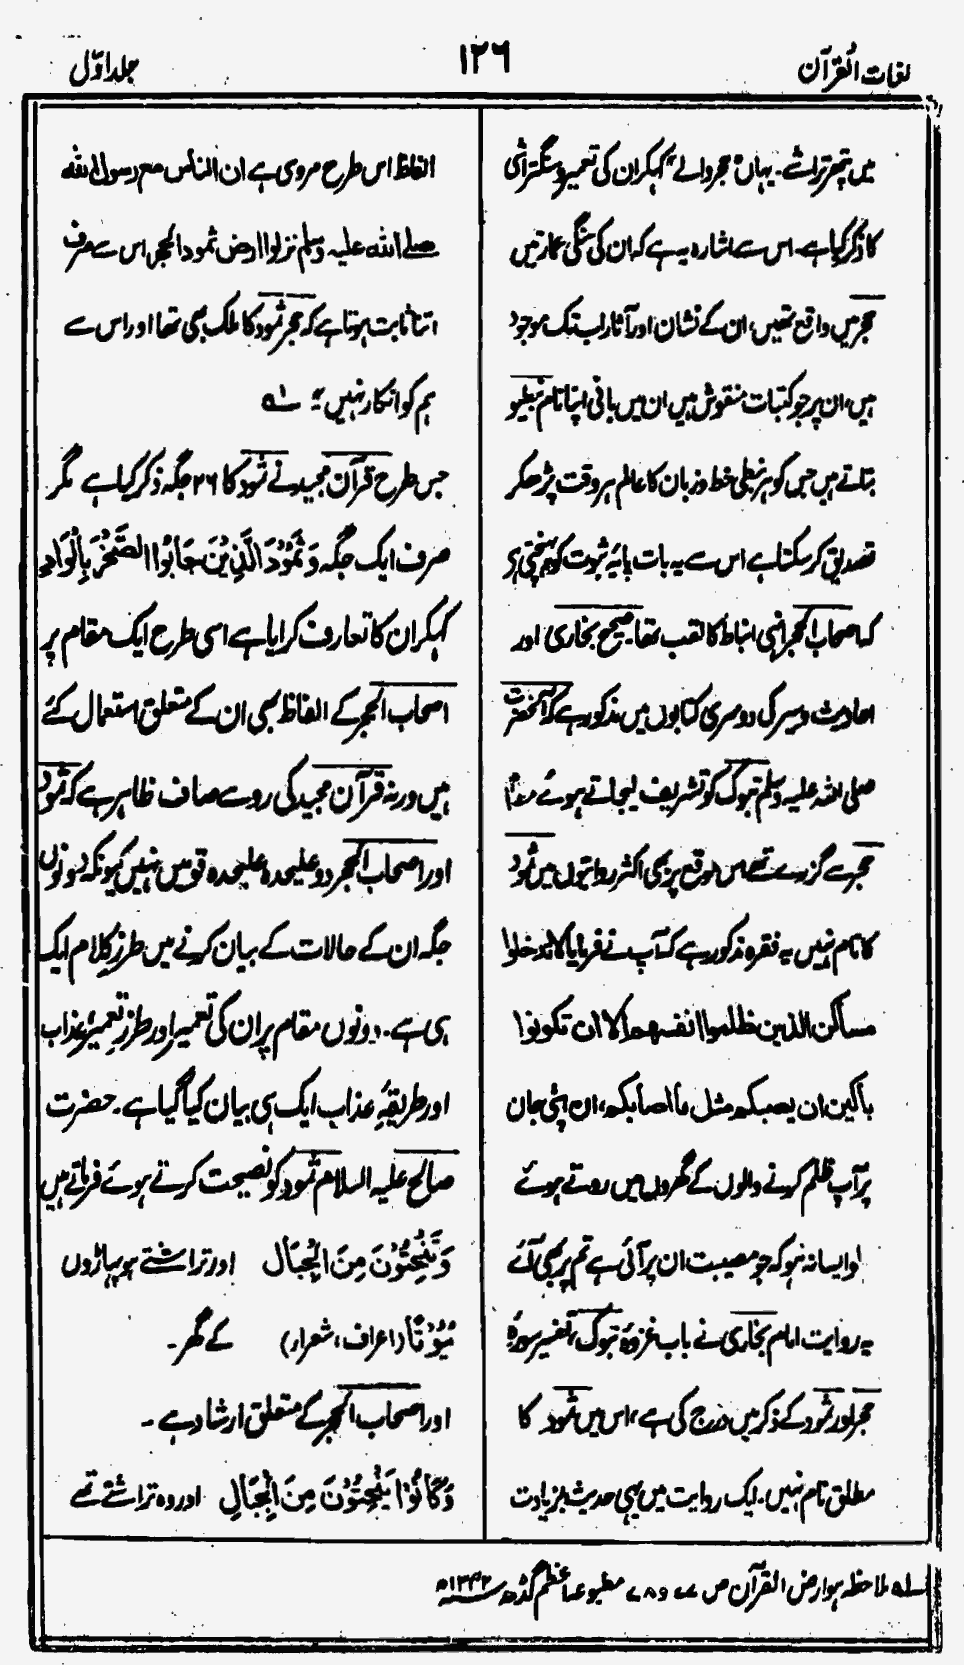 لغات القرآن
۱۲۶
جلد اوّل
میں پتھر تراشے۔ یہاں "حجر والے" کہکر ان کی تعمیر وسنگتراشی
کا ذکر کیا ہے۔ اس سے اشارہ یہ ہے کہ ان کی سنگی عمارتیں
حجر میں واقع تھیں، ان کے نشان اور آثار اب تک موجود
ہیں، ان پر جو کتبات منقوش ہیں ان میں بانی اپنا نام نبطیو
بتاتے ہیں جس کو ہر نبطی خط وزبان کا عالم ہر وقت پڑھ کر
تصدیق کرسکتا ہے اس سے یہ بات پایۂ ثبوت کو پہنچتی ہی
کہ اصحاب الحجر انہی انباط کا لقب تھا۔ صحیح بخاری اور
احادیث وسیر کی دوسری کتابوں میں مذکور ہے کہ آنحضرت
صلی اللہ علیہ وسلم تبوک کو تشریف لیجاتے ہوئے مقام
حجر سے گزرے تھے اس موقع پر بھی اکثر روایتوں میں ثمود
کا نام نہیں یہ فقرہ مذکور ہے کہ آپ نے فرمایا لا تدخلوا
مساكن الذين ظلموا انفسهم الا ان تكونوا
باكين ان يصيبكم مثل ما اصابكم، ان اپنی جان
پر آپ ظلم کرنے والوں کے گھروں میں روتے ہوئے
او ایسا نہ ہو کہ جو مصیبت ان پر آئی ہے تم پر بھی آئے
یہ روایت امام بخاری نے باب غزوۂ تبوک، تفسیر سورۂ
حجر اور ثمود کے ذکر میں درج کی ہے، اس میں ثمود کا
مطلق نام نہیں۔ ایک روایت میں یہی حدیث بزیادت
الفاظ اس طرح مروی ہے ان الناس مع رسول الله
صلے الله علیہ وسلم نزلوا ارض ثمود الحجر اس سے صرف
اتنا ثابت ہوتا ہے کہ حجر ثمود کا ملک بھی تھا اور اس سے
ہم کو انکار نہیں" ؎۱
جس طرح قرآن مجید نے ثمود کا ۲۶ جگہ ذکر کیا ہے مگر
صرف ایک جگہ وَثَمُوْدَ الَّذِيْنَ جَابُوا الصَّخْرَ بِالْوَادِ
کہکر ان کا تعارف کرایا ہے اسی طرح ایک مقام پر
اصحاب الحجر کے الفاظ بھی ان کے متعلق استعمال کئے
ہیں ورنہ قرآن مجید کی رو سے صاف ظاہر ہے کہ ثمود
اور اصحاب الحجر دو علیحدہ علیحدہ قومیں نہیں کیونکہ دونوں
جگہ ان کے حالات کے بیان کرنے میں طرز کلام ایک
ہی ہے۔ دونوں مقام پر ان کی تعمیر اور طرز تعمیر، عذاب
اور طریقۂ عذاب ایک ہی بیان کیا گیا ہے۔ حضرت
صالح علیہ السلام ثمود کو نصیحت کرتے ہوئے فرماتے ہیں
وَتَنْحِتُوْنَ مِنَ الْجِبَالِ اور تراشتے ہو پہاڑوں
بُيُوْتًا (اعراف، شعراء) کے گھر۔
اور اصحاب الحجر کے متعلق ارشاد ہے۔
وَكَانُوْا يَنْحِتُوْنَ مِنَ الْجِبَالِ اور وہ تراشتے تھے
؎۱ ملاحظہ ہو ارض القرآن ص ۷۷ و ۷۸ مطبوعہ اعظم گڈھ ۱۳۴۲ھ